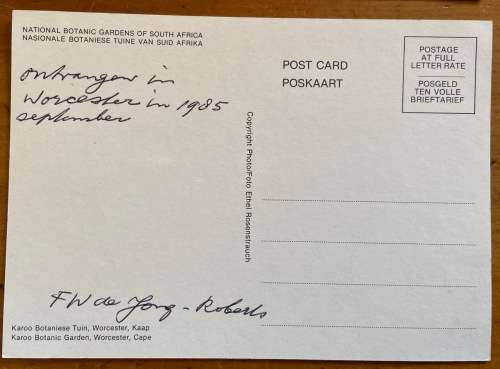 NATIONAL BOTANIC GARDENS OF SOUTH AFRICA
NASIONALE BOTANIESE TUINE VAN SUID AFRIKA
ontvangen in
Worcester in 1985
september
POST CARD
POSKAART
POSTAGE
AT FULL
LETTER RATE
POSGELD
TEN VOLLE
BRIEFTARIEF
Copyright Photo/Foto Ethel Rosenstrauch
FW de Jong - Roberts
Karoo Botaniese Tuin, Worcester, Kaap
Karoo Botanic Garden, Worcester, Cape